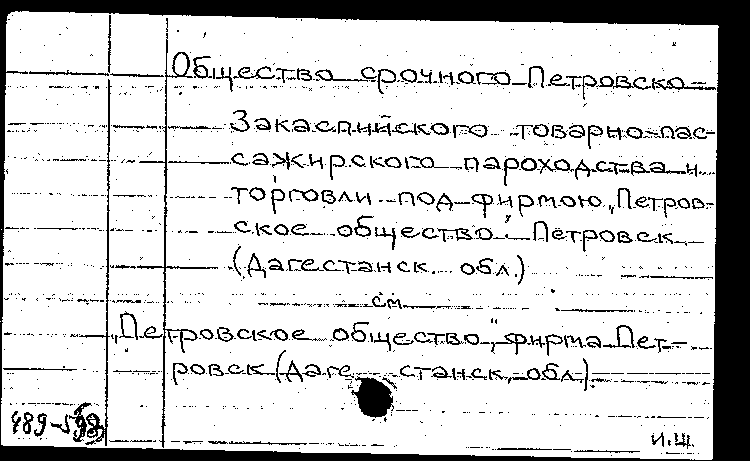 Общество срочного Петровско-
Закаспийского товарно-пас-
сажирского пароходства и
торговли под фирмою „Петров-
ское общество". Петровск
(Дагестанск. обл.)
см.
„Петровское общество", фирма. Пет-
ровск (Даге станск. обл.).
И.Щ.